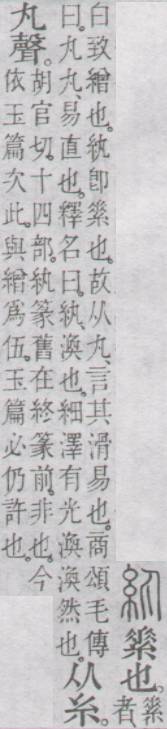 紈素也。素
者
白致繒也。紈卽素也。故从丸、言其滑易也。商頌毛傳
曰。丸丸、易直也。釋名曰。紈、渙也。細澤有光渙渙然也。
从糸。
丸聲。
胡官切。十四部。紈篆舊在終篆前。非也。今
依玉篇次此。與繒爲伍。玉篇必仍許也。